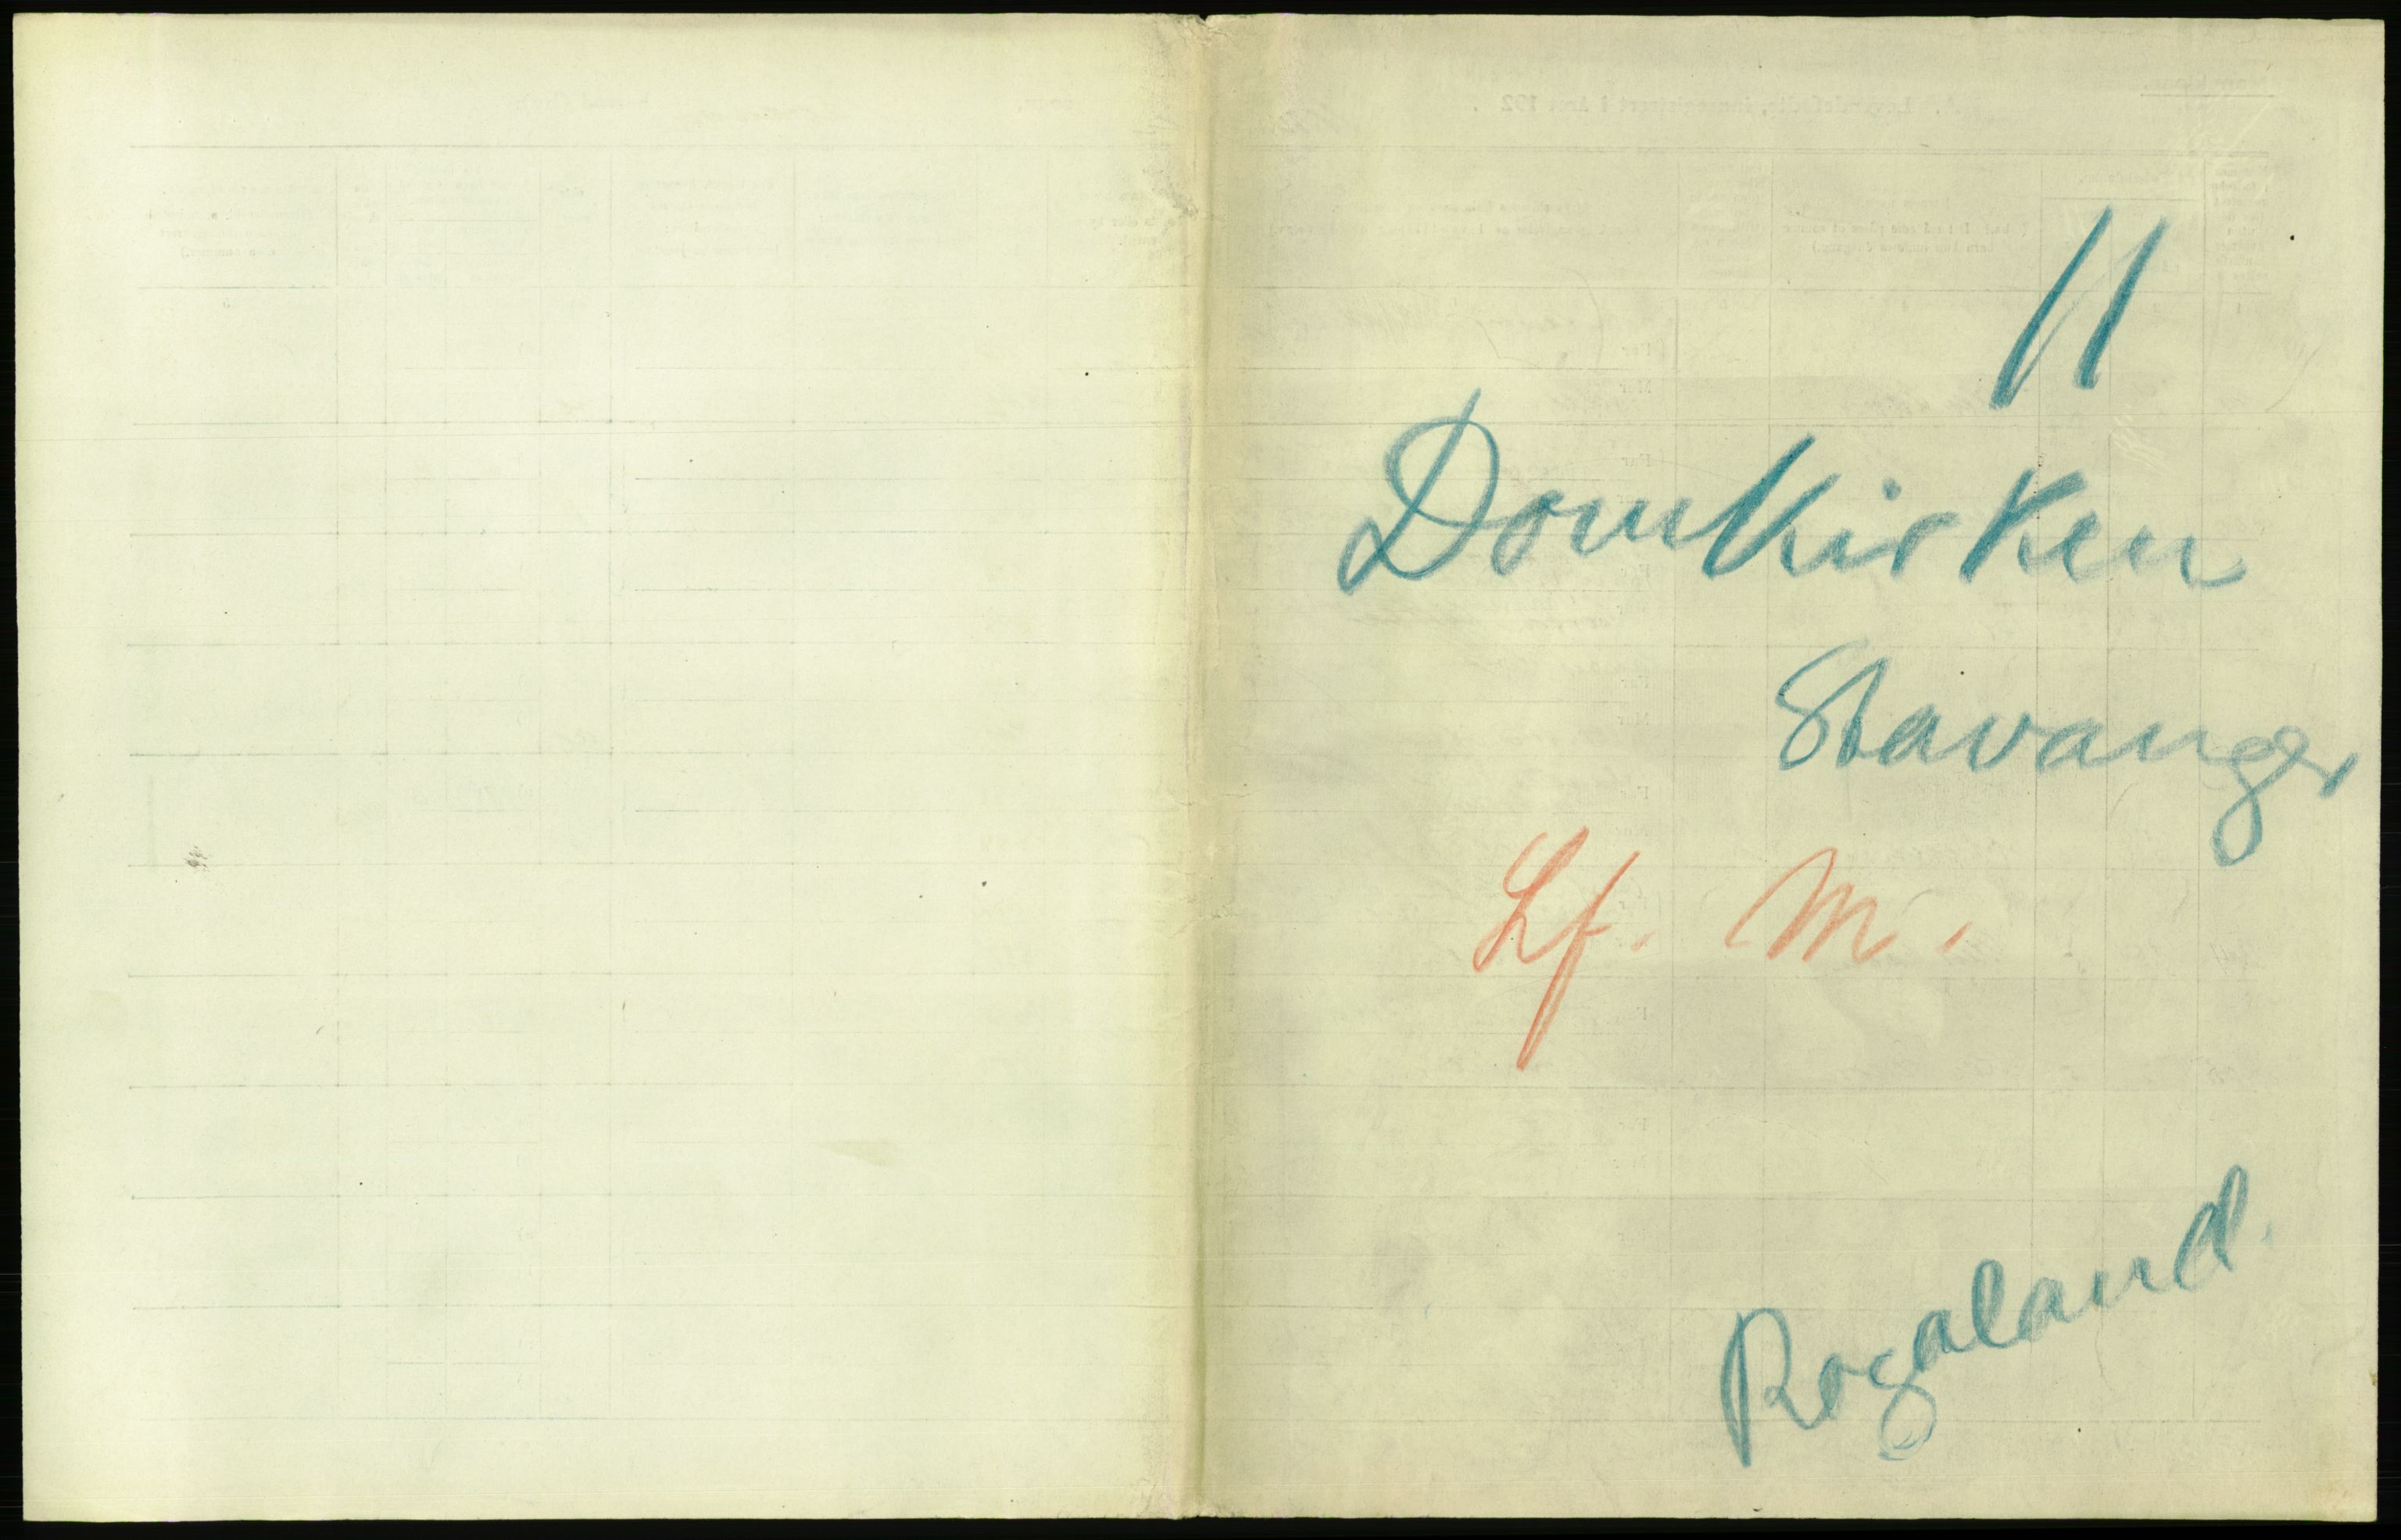 11
Domkirken
Stavanger
Lf. M.
Rogaland.